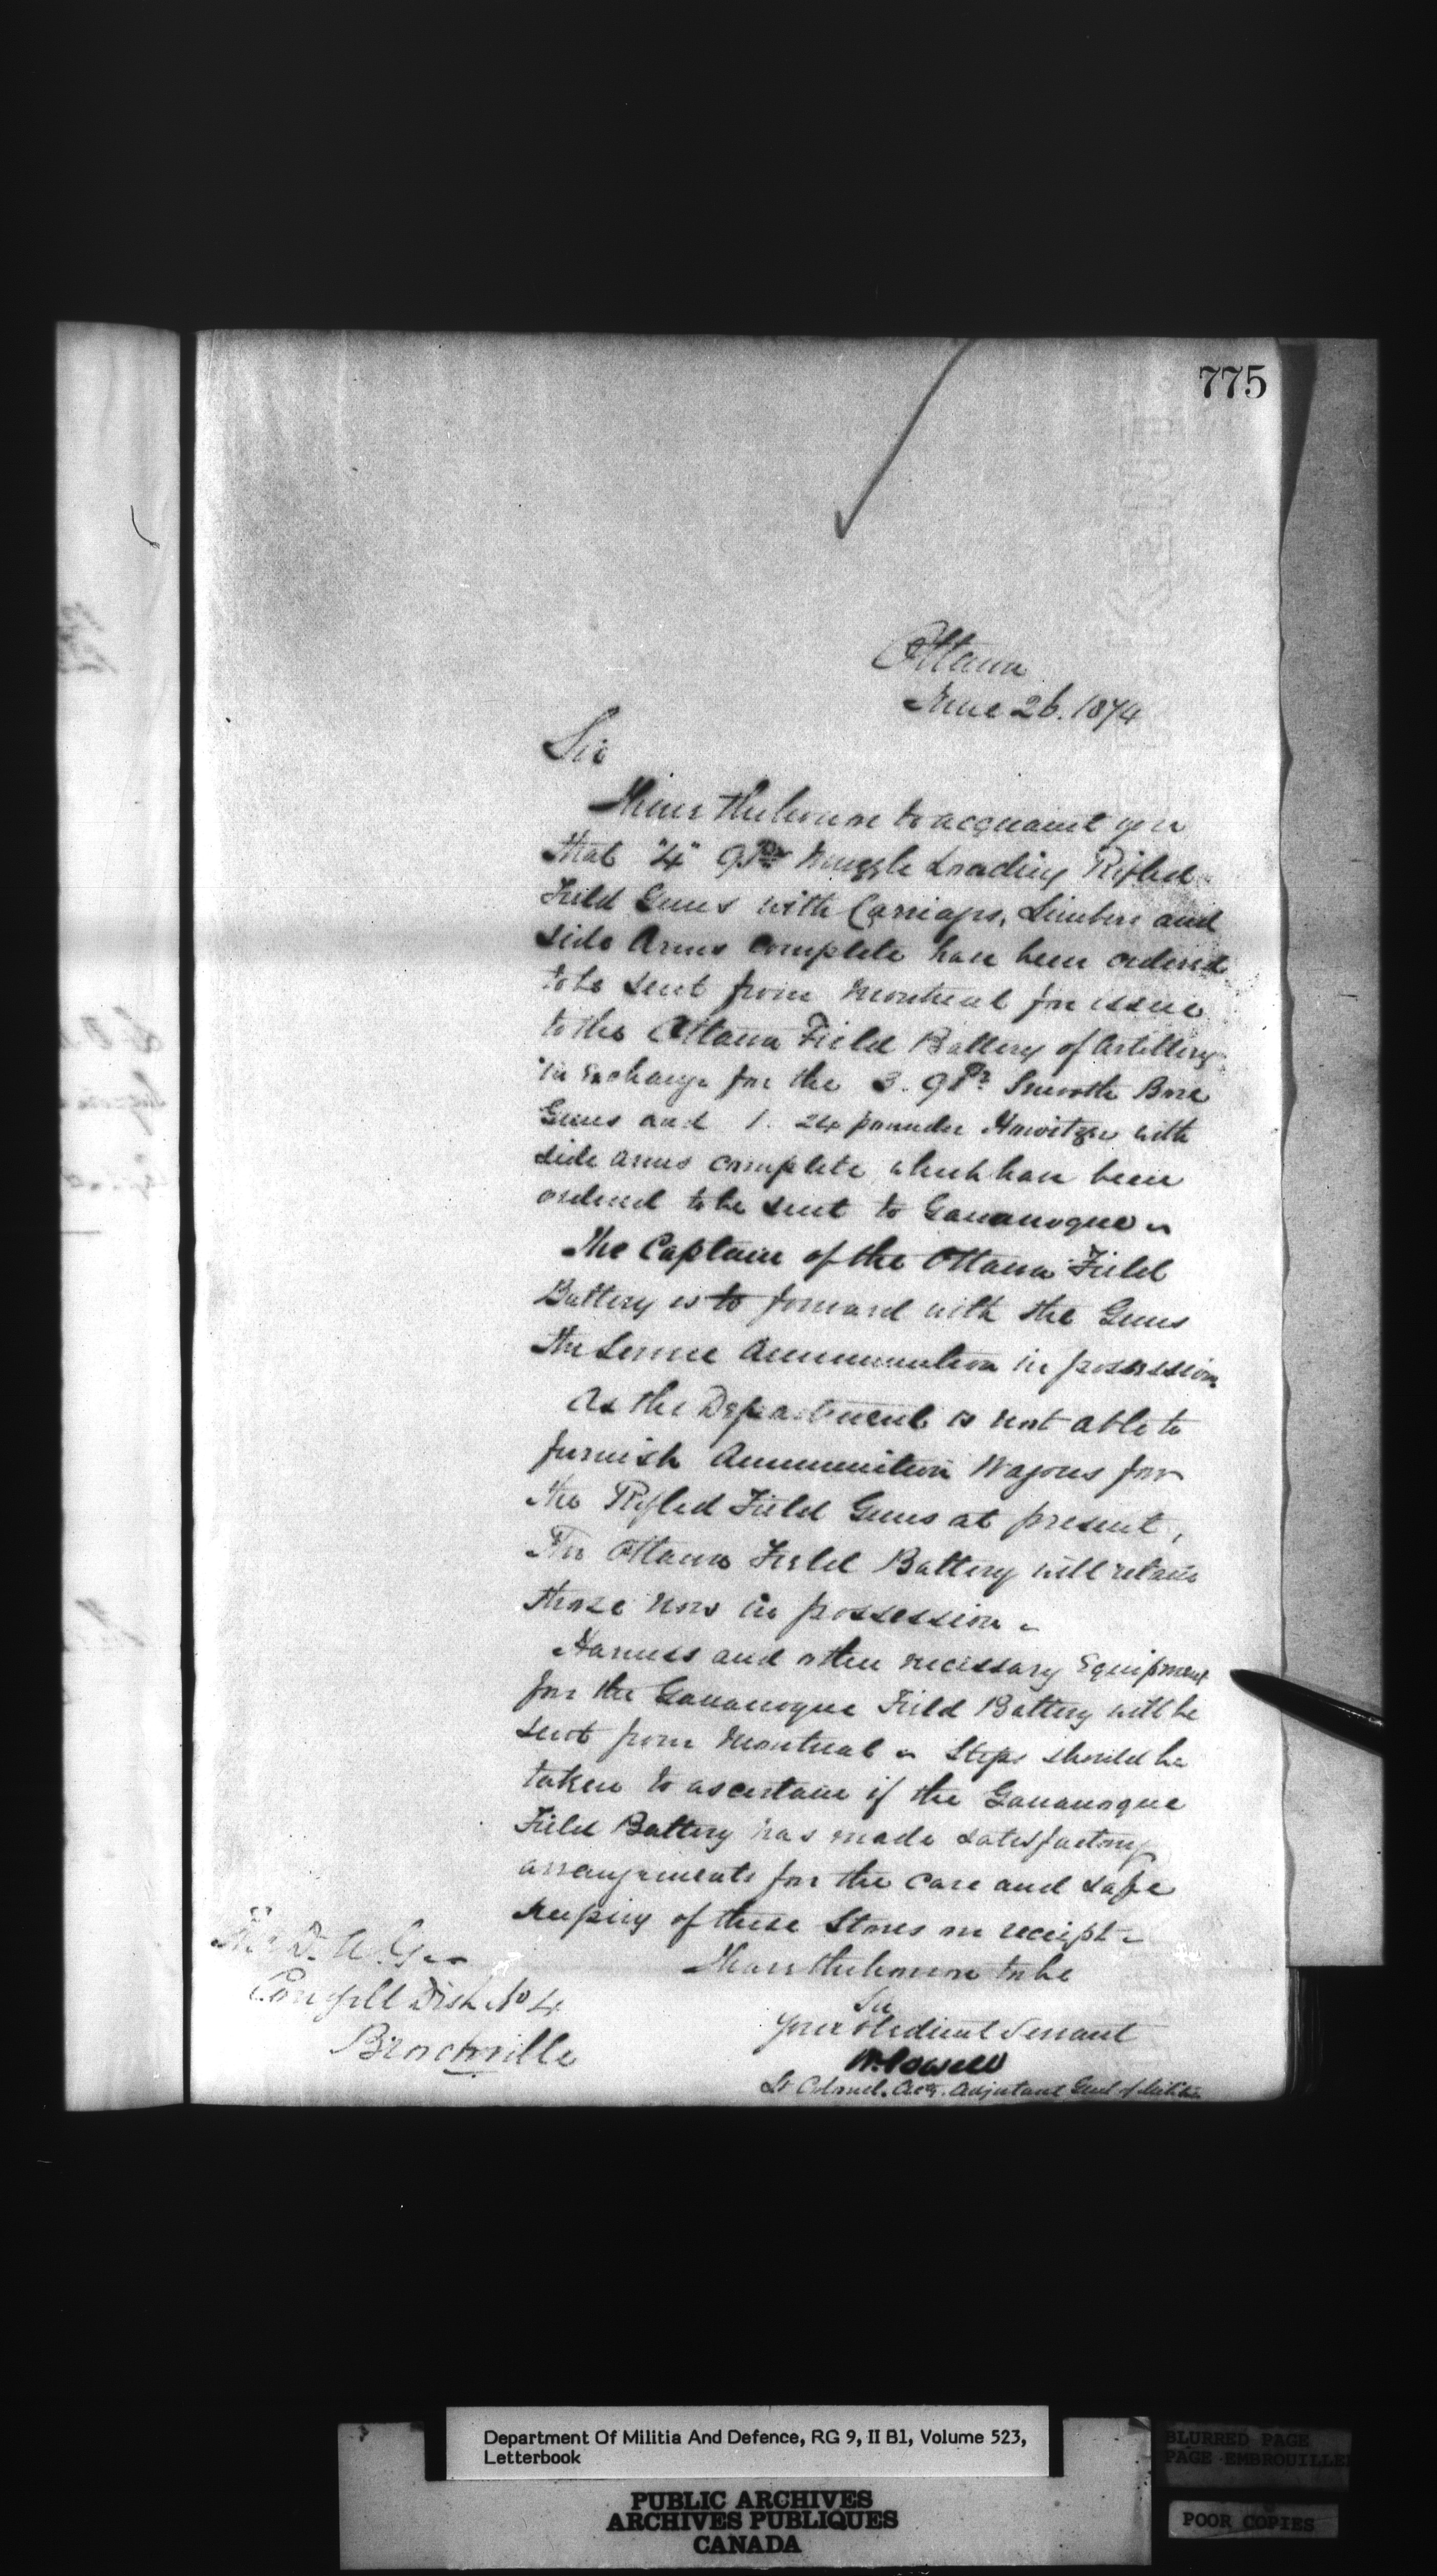 775
Ottawa
June 26. 1874
Sir
I have the honor to acquaint you
that "4" 9 Pr Muzzle Loading Rifled
Field Guns with Carriages, Limbers and
side Arms complete have been ordered
to be sent from Montreal for issue
to the Ottawa Field Battery of Artillery
in Exchange for the 3. 9 Pr Smooth Bore
Guns and 1. 24 pounder Howitzer with
side arms complete which have been
ordered to be sent to Gananoque
The Captain of the Ottawa Field
Battery is to forward with the Guns
the Service Ammunition in possession
As the Department is not able to
furnish Ammunition Wagons for
the Rifled Field Guns at present,
The Ottawa Field Battery will retain
those now in possession
Harness and other necessary Equipment
for the Gananoque Field Battery will be
sent from Montreal Steps should be
taken to ascertain if the Gananoque
Field Battery has made satisfactory
arrangements for the care and safe
keeping of these Stores on receipt
I have the honor to be
Sir
Your obedient Servant
W. Powell
Lt Colonel. Actg. Adjutant Genl of Militia
The D. A. G.
Comg Mil Dist No 4
Brockville
Department Of Militia And Defence, RG 9, II B1, Volume 523,
Letterbook
PUBLIC ARCHIVES
ARCHIVES PUBLIQUES
CANADA
BLURRED PAGE
PAGE EMBROUILLE
POOR COPIES